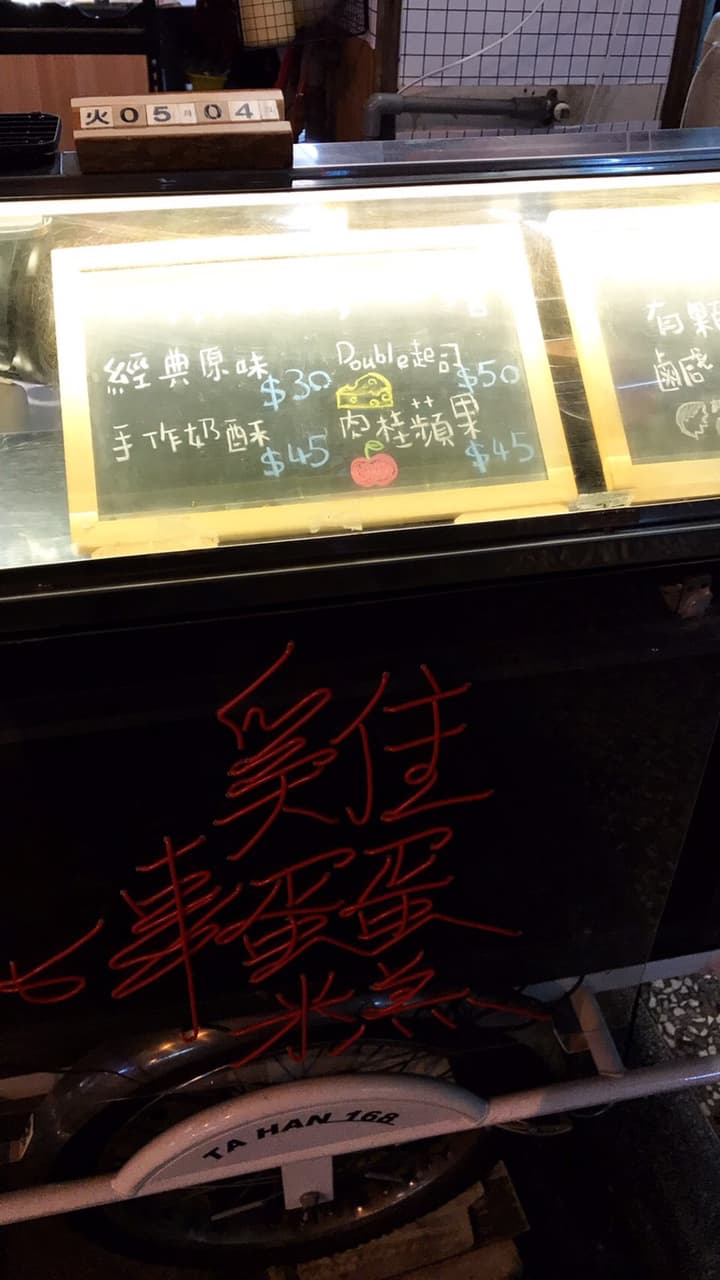 火 05月04日
經典原味 $30 Double起司 $50
手作奶酥 $45 肉桂蘋果 $45
有顆
鹹
雞
蛋蛋
糕
TA HAN 168